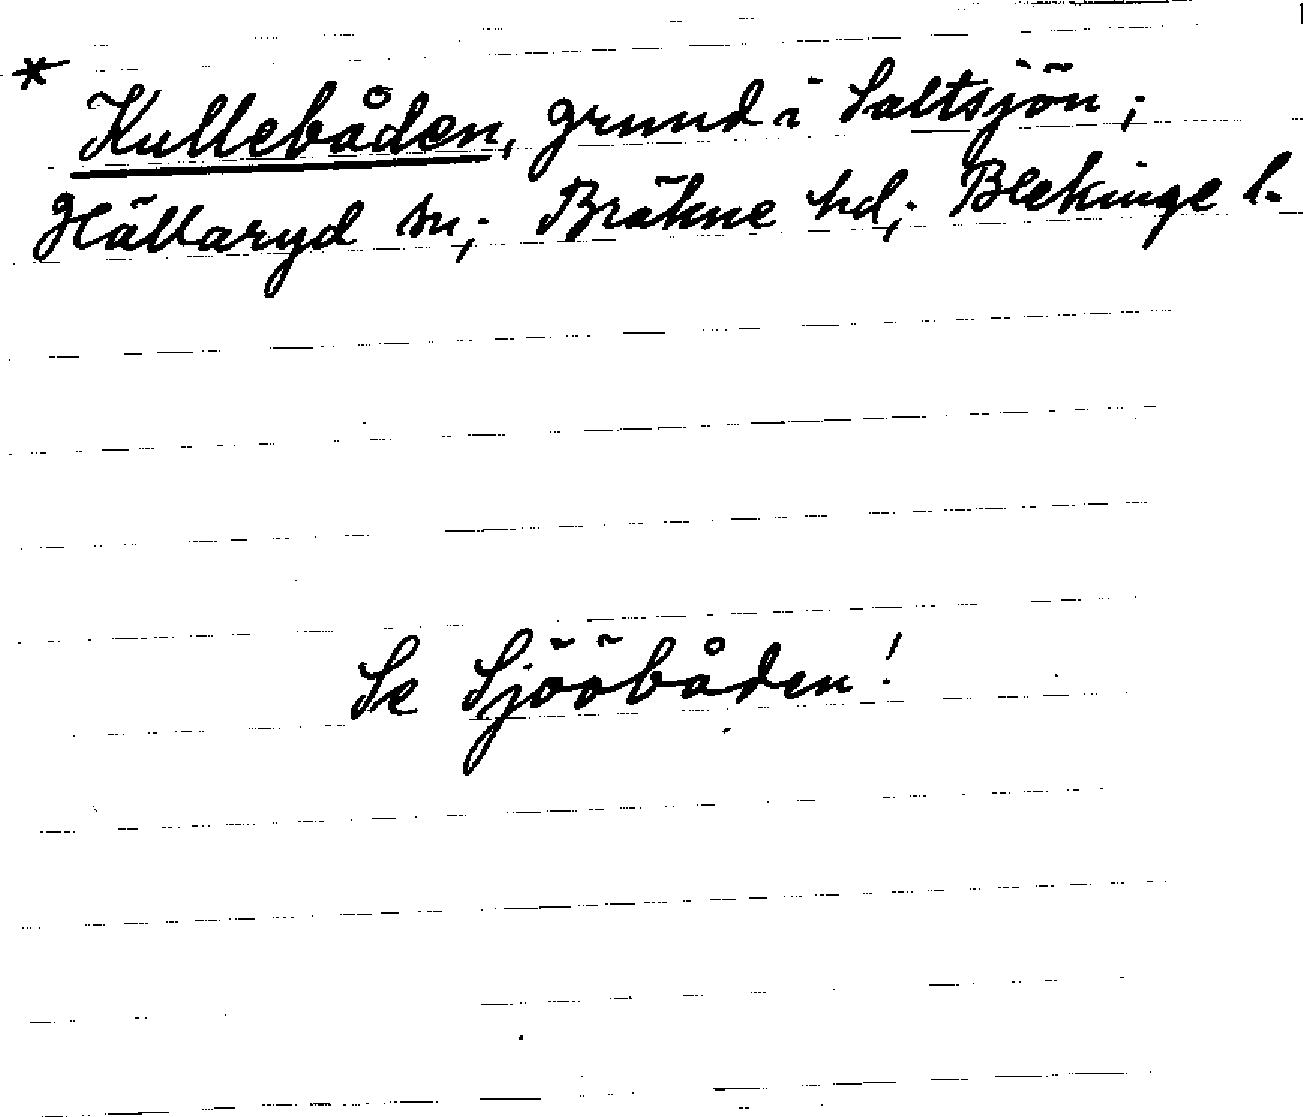 * Kullebåden, grund i Saltsjön;
Hällaryd sn; Bräkne hd; Blekinge l.
Se Sjööbåden!